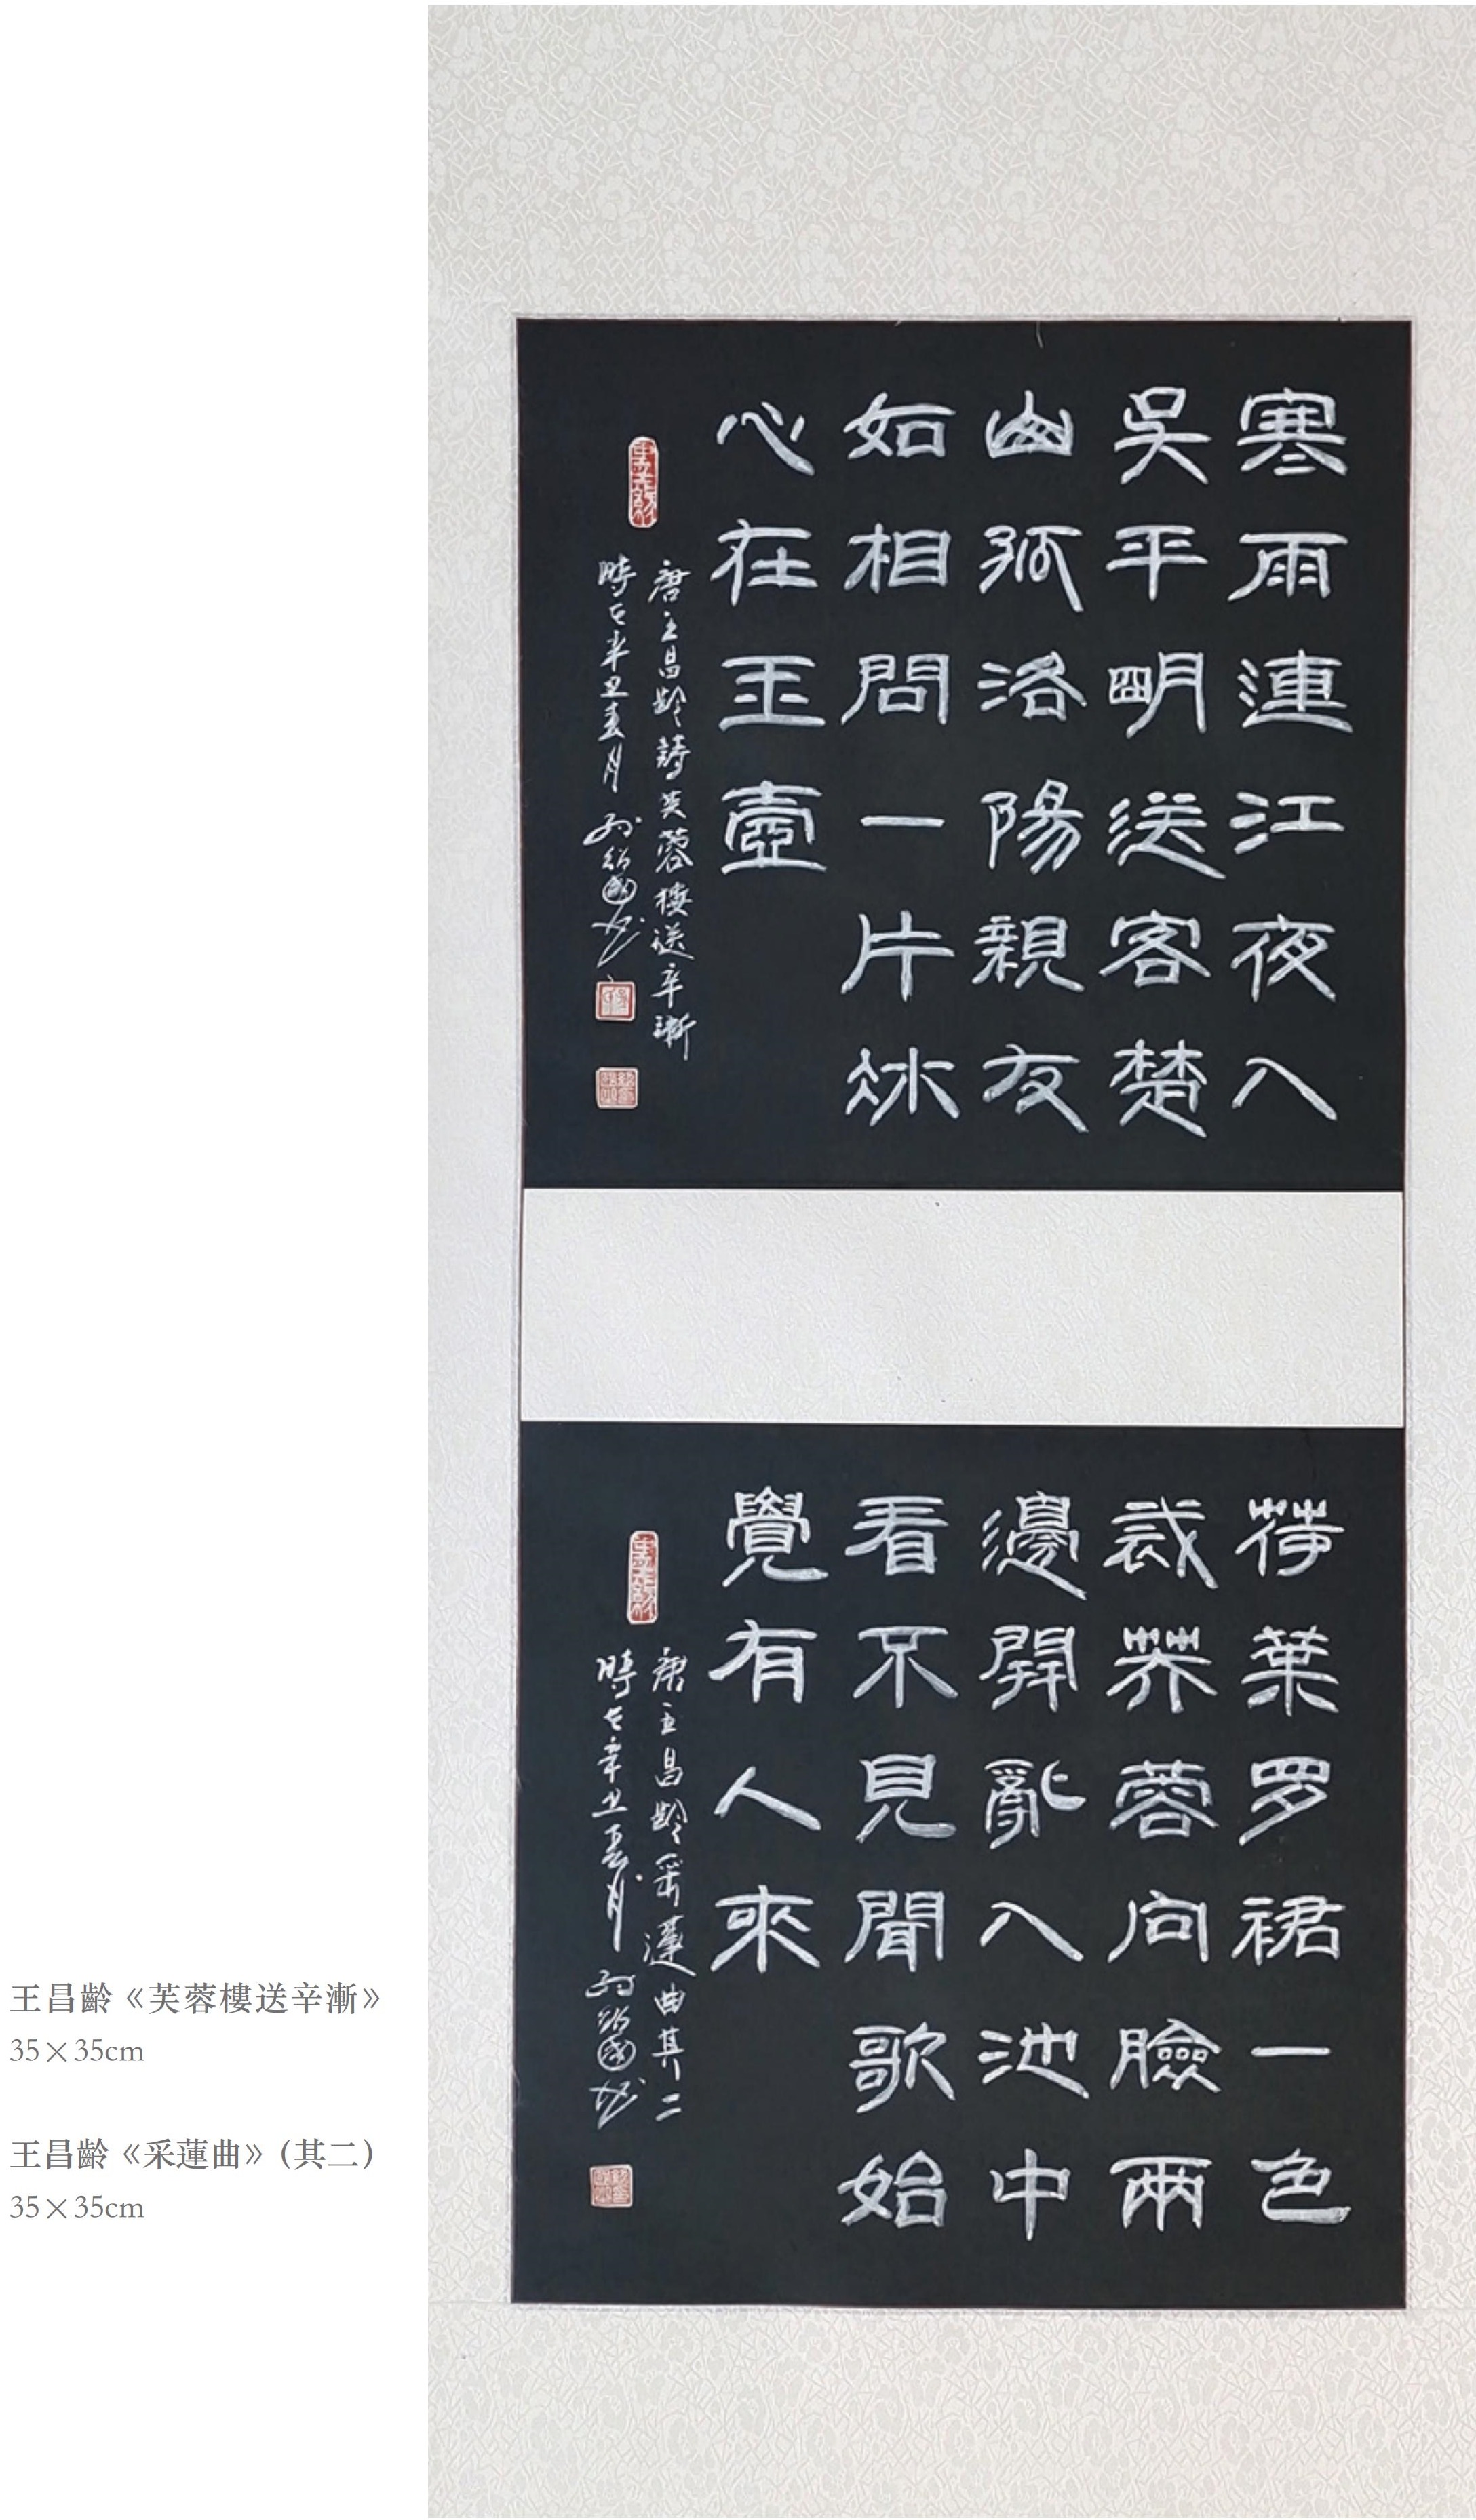 寒雨連江夜入
吳平明送客楚
山孤洛陽親友
如相問一片冰
心在玉壺
唐王昌齡詩芙蓉樓送辛漸
時在辛丑春月 孫紹國書
荷葉罗裙一色
裁芙蓉向臉兩
邊開亂入池中
看不見聞歌始
覺有人來
唐王昌齡采蓮曲其二
時在辛丑春月 孫紹國書
王昌齡《芙蓉樓送辛漸》
35×35cm
王昌齡《采蓮曲》(其二)
35×35cm